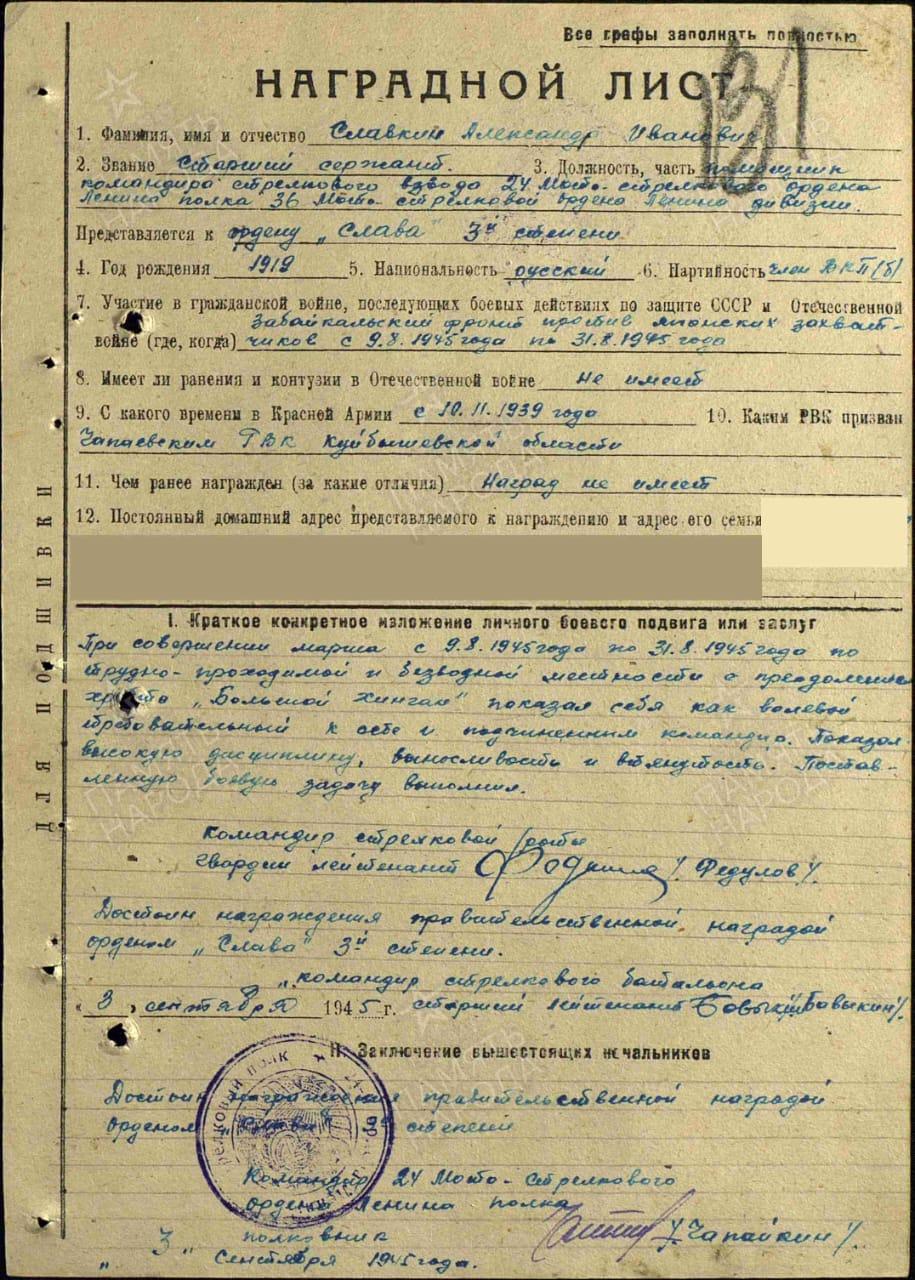 Все графы заполнять полностью
НАГРАДНОЙ ЛИСТ
131
1. Фамилия, имя и отчество Славкин Александр Иванович
2. Звание Старший сержант. 3. Должность, часть помощник
командира стрелкового взвода 24 Мото-стрелкового ордена
Ленина полка 36 Мото-стрелковой ордена Ленина дивизии.
Представляется к ордену „Слава" 3й степени
4. Год рождения 1919 5. Национальность русский 6. Партийность член ВКП(б)
7. Участие в гражданской войне, последующих боевых действиях по защите СССР и Отечественной
Забайкальский фронт против японских захват-
войне (где, когда) чиков с 9.8.1945 года по 31.8.1945 года
8. Имеет ли ранения и контузии в Отечественной войне не имеет
9. С какого времени в Красной Армии с 10.11.1939 года 10. Каким РВК призван
Чапаевским ГВК Куйбышевской области
11. Чем ранее награжден (за какие отличия) Наград не имеет
12. Постоянный домашний адрес представляемого к награждению и адрес его семьи
ДЛЯ ПОДШИВКИ
I. Краткое конкретное изложение личного боевого подвига или заслуг
При совершении марша с 9.8.1945 года по 31.8.1945 года по
трудно-проходимой и безводной местности о преодолении
хребта „Большой Хинган" показал себя как волевой
требовательный к себе и подчиненным командир. Показал
высокую дисциплину, выносливость и втянутость. Постав-
ленную боевую задачу выполнил.
Командир стрелковой роты
гвардии лейтенант /Федулов/.
Достоин награждения правительственной наградой
орденом „Слава" 3й степени.
командир стрелкового батальона
„3" сентября 1945 г. старший лейтенант /Бавыкин/.
II. Заключение вышестоящих начальников
Достоин награждения правительственной наградой
орденом „Слава" 3й степени
Командир 24 Мото-стрелкового
ордена Ленина полка
полковник /Чапайкин/.
„3" сентября 1945 года.
ПАМЯТЬ НАРОДА